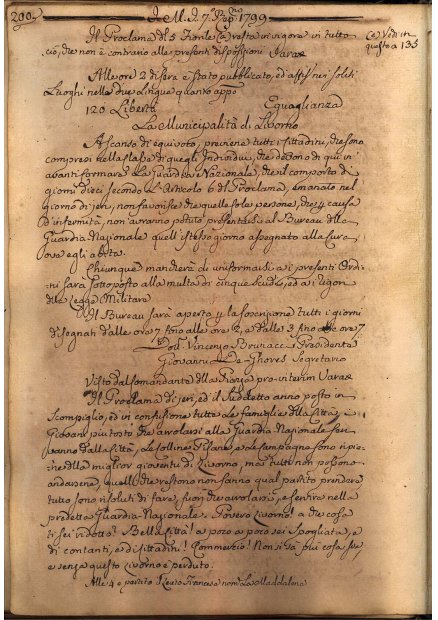 200.
J. M. J. 7. 1799
Il Proclama del 5 Fiorile (a) resta in vigore in tutto
ciò, che non è contrario alle presenti disposizioni Varae
(a) Vedi in
questo a 135
Alle ore 2 di sera è stato pubblicato, ed affisso nei soliti
Luoghi nelle due Lingue quanto appo
120 Libertà Eguaglianza
La Municipalità di Livorno
A scanso di equivoto, previene tutti i Cittadini, che sono
compresi nella Classe di quegli Individui, che debbono di qui in
avanti formare la Guardia Nazionale, che il comporto di
giorni dieci secondo l'Articolo 6 del Proclama, emanato nel
giorno di jeri, non favorisce che quelle sole persone, che p causa
d'infermità, non avranno potuto presentarsi al Bureau della
Guardia Nazionale quell'istesso giorno assegnato alla Cura
ove egli abita.
Chiunque mancherà di uniformarsi ai presenti Ordi-
ni sarà sottoposto alla multa di cinque Scudi, ed a i rigori
della Legge Militare
Il Bureau sarà aperto p la soscrizione tutti i giorni
disegnati dalle ore 7 fino alle ore 2, e dalle 3 fino alle ore 7
Dott. Vincenzo Brunacci Presidente
Giovanni De-Ghores Segretario
Visto dal Comandante della Piazza pro-interim Varae
Il Proclama di jeri, ed il Suddetto anno posto in
scompiglio, ed in confusione tutte le famiglie della Città, e
Giovani piuttosto che arrolarsi alla Guardia Nazionale sen
vanno dalla Città, e le colline Pisane, e le Campagne sono ripie-
ne della miglior gioventù di Livorno, ma tutti non possono
andarsene, quelli che restono non sanno qual partito prendere
tutto sono risoluti di fare, fuori che arrolarsi, e sentire nella
predetta Guardia Nazionale. Povero Livorno! a che cosa
ti sei ridotto? Bella Città! a poco a poco sei spogliata, e
di contanti, e di Cittadini! Commercio! Non si sà più cosa sia,
e senza questo Livorno è perduto.
Alle 4 è partito il Leuto Francese nom. La Maddalena